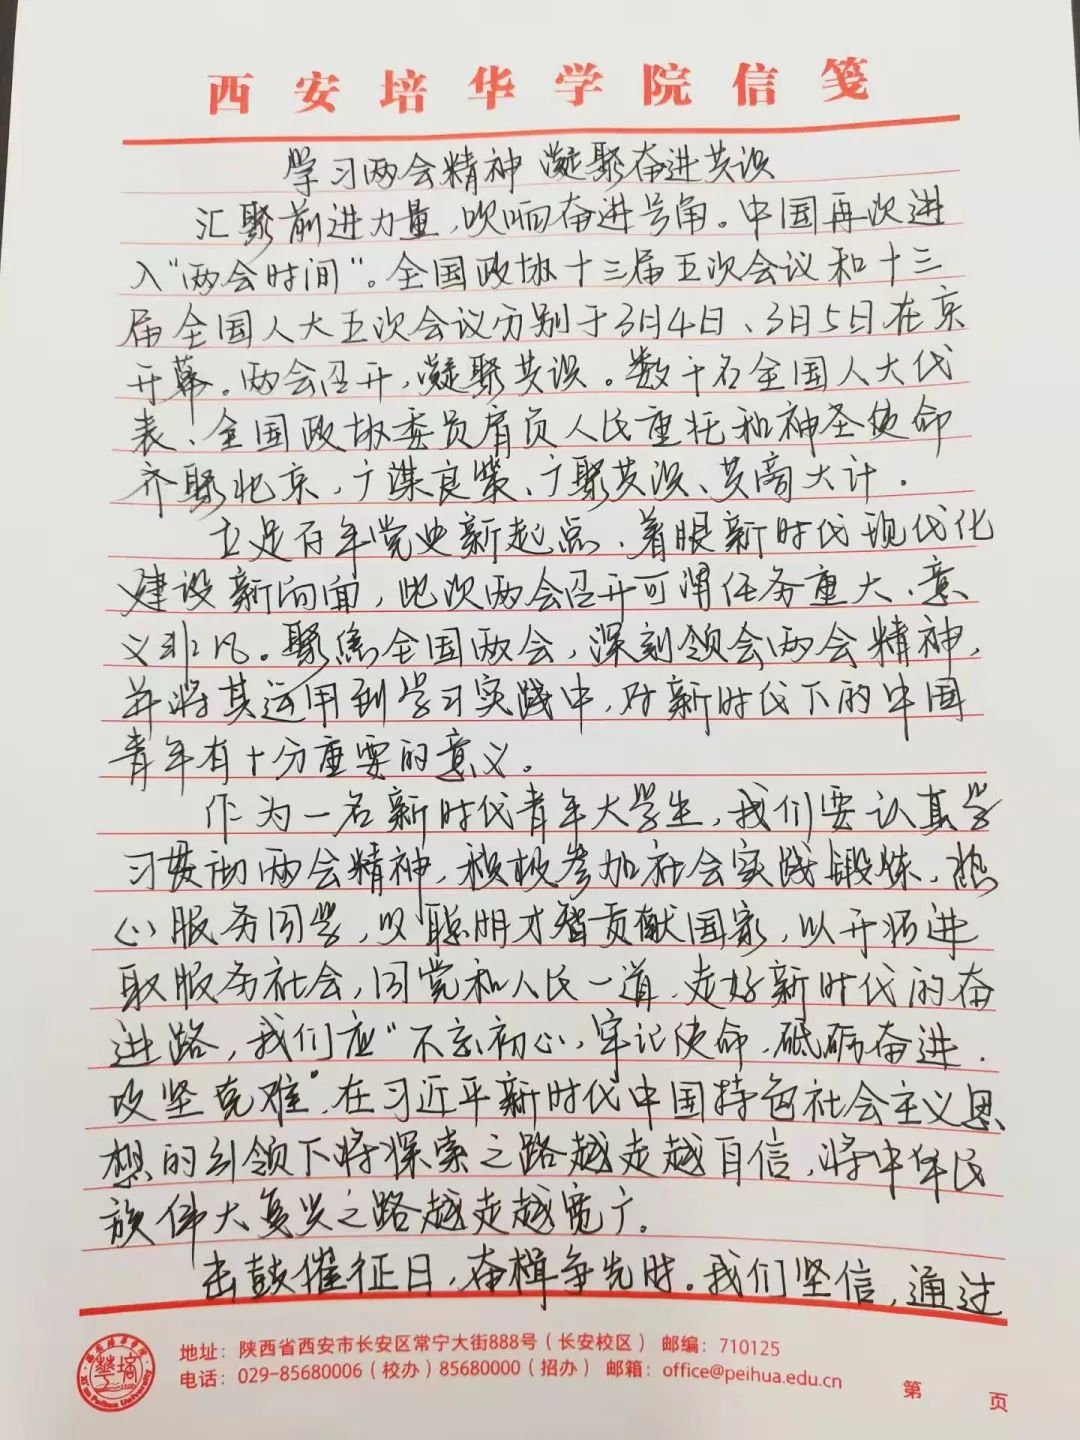 西安培华学院信笺
学习两会精神 凝聚奋进共识
汇聚前进力量,吹响奋进号角。中国再次进
入“两会时间”。全国政协十三届五次会议和十三
届全国人大五次会议分别于3月4日、3月5日在京
开幕。两会召开,凝聚共识。数千名全国人大代
表、全国政协委员肩负人民重托和神圣使命
齐聚北京,广谋良策、广聚共识、共商大计.
立足百年党史新起点、着眼新时代现代化
建设新局面,此次两会召开可谓任务重大、意
义非凡。聚焦全国两会,深刻领会两会精神,
并将其运用到学习实践中,对新时代下的中国
青年有十分重要的意义。
作为一名新时代青年大学生,我们要认真学
习贯彻两会精神,积极参加社会实践锻炼,热
心服务同学,以聪明才智贡献国家,以开拓进
取服务社会,同党和人民一道,走好新时代的奋
进路,我们应“不忘初心,牢记使命,砥砺奋进.
攻坚克难”,在习近平新时代中国特色社会主义思
想的引领下将探索之路越走越自信,将中华民
族伟大复兴之路越走越宽广.
击鼓催征日,奋楫争先时。我们坚信,通过
西安培华学院
Xi'an Peihua University
地址:陕西省西安市长安区常宁大街888号(长安校区) 邮编:710125
电话:029-85680006(校办)85680000(招办) 邮箱:office@peihua.edu.cn
第 页